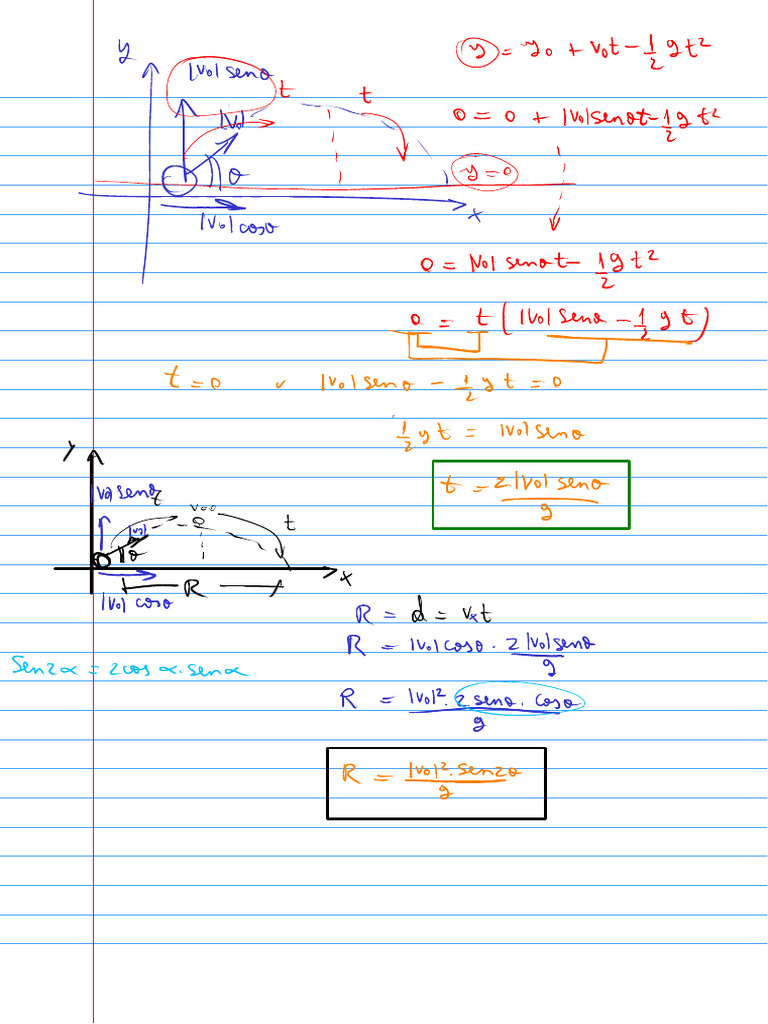 y
|V₀| senθ
t
t
y = y₀ + v₀t - 1/2 gt²
|V₀|
0 = 0 + |V₀| senθt - 1/2 g t²
θ
y = 0
|V₀| cosθ
x
0 = |V₀| senθt - 1/2 g t²
0 = t (|V₀| senθ - 1/2 g t)
t = 0 v |V₀| senθ - 1/2 g t = 0
1/2 g t = |V₀| senθ
y
t = 2|V₀| senθ / g
|V₀| senθ
t
v=0
t
|V₀|
θ
x
R
|V₀| cosθ
R = d = vₓt
R = |V₀| cosθ . 2|V₀| senθ / g
Sen2α = 2cos α . senα
R = |V₀|² . 2 senθ . cosθ / g
R = |V₀|² . Sen2θ / g